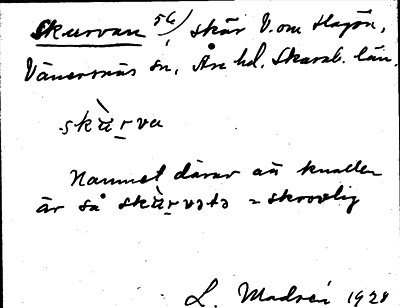 Skurvan 56/, skär V. om Hagön,
Vänersnäs sn, Åse hd. Skarab. län.
skùrva
Namnet därav att knallen
är så skùrvatə = skrovlig
L. Modéen 1928